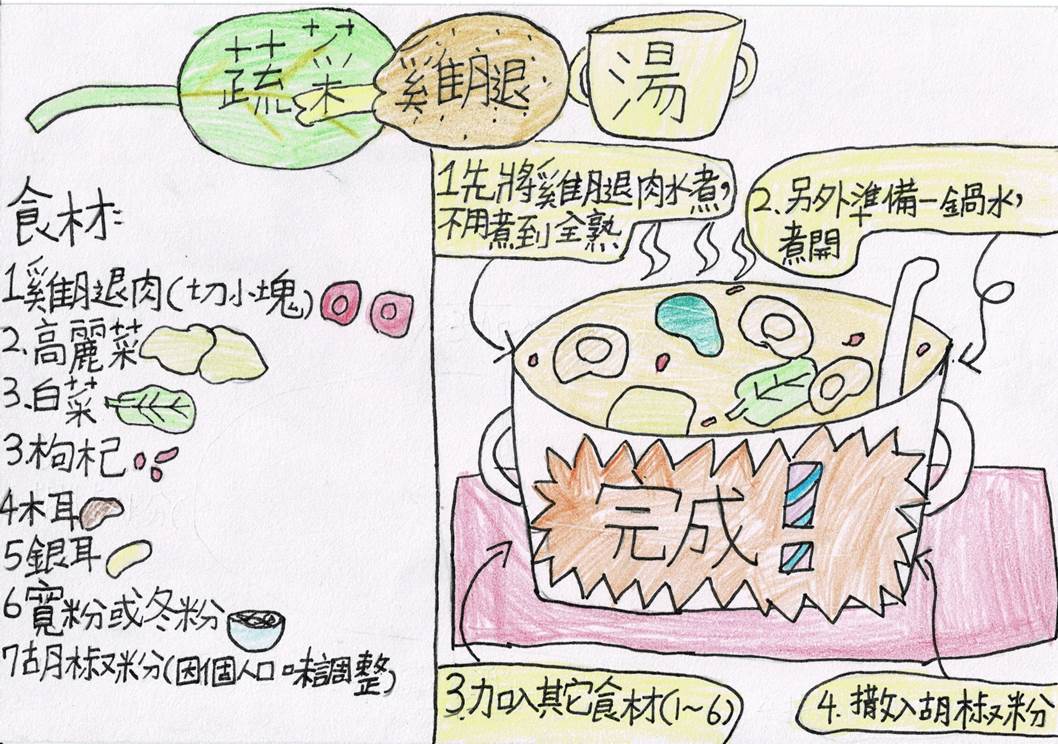 蔬菜雞腿湯
食材:
1雞腿肉(切小塊)
2.高麗菜
3.白菜
3.枸杞
4木耳
5銀耳
6寬粉或冬粉
7胡椒粉(因個人口味調整)
1先將雞腿肉水煮,
不用煮到全熟
2.另外準備一鍋水,
煮開
完成!!
3.加入其它食材(1~6)
4.撒入胡椒粉